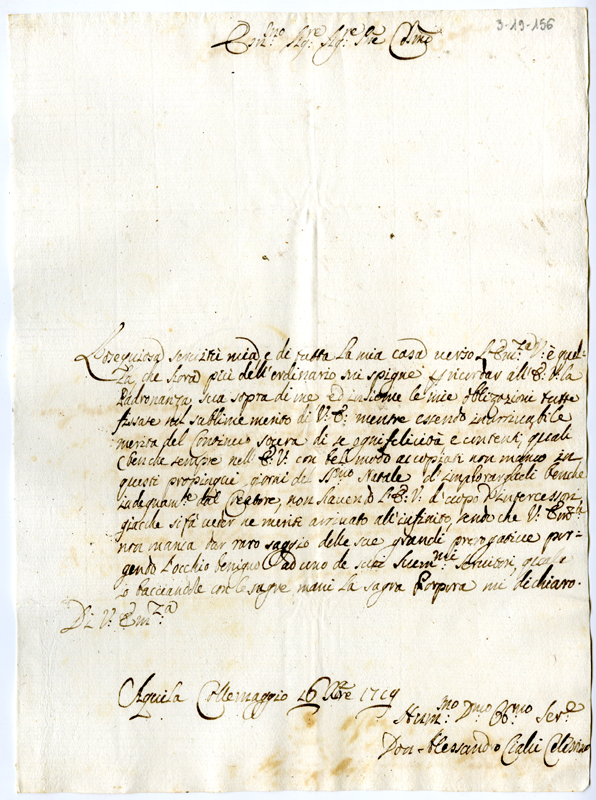 3-19-156
Em.mo Sig.re Sig.re P.ne Col.mo
L'ossequiosa servitù mia e di tutta la mia casa verso l'Em.za V. è quel-
la, che hora più dell'ordinario mi spigne à ricordar all'E. V. la
Padronanza sua sopra di me ed insieme le mie obligazioni tutte
fissate nel sublime merito di V. E. mentre essendo inarrivabile
merita del continuo sopra di se ogni felicità e contenti, quali
benche sempre nell'E. V. con bel modo accopiati non manco in
questi propinqui giorni del SS.mo Natale d'implorargleli benche
indegnam.te dal Creatore, non havendo l'E. V. d'uopo d'intercessori
giache si fà veder ne meriti arrivato all'infinito, sendo che V. Em.za
non manca dar raro saggio delle sue grandi prerogative por-
gendo l'occhio benigno ad uno de suoi servitori, quale
io bacciandole con le sagre mani la sagra Porpora mi dichiaro.
Di V. Em.za
Aquila Collemaggio 16 Xbre 1719
Hum.mo D.mo Obb.mo Ser.e
Don Alessandro Celestino